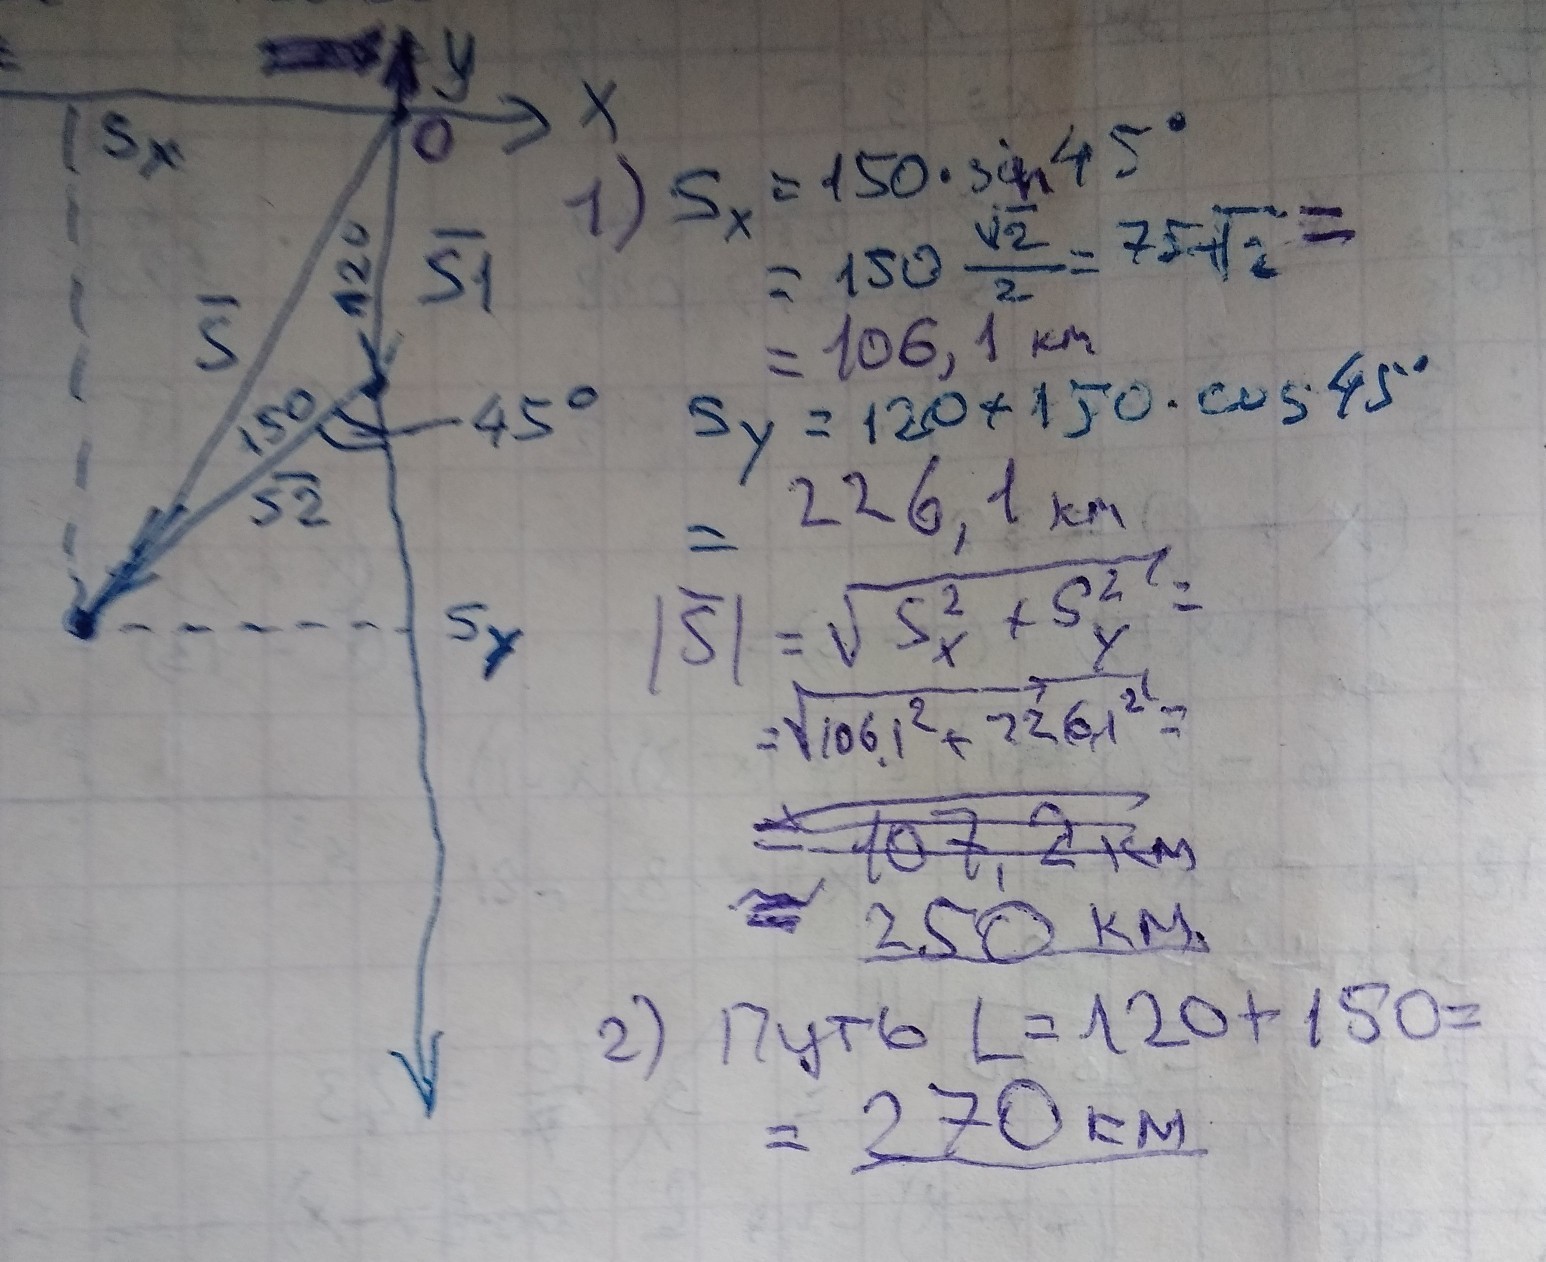 y
x
0
Sx
120
S̅1
S̅
150
45°
S̅2
Sy
1) Sx = 150 · sin 45°
= 150 √2/2 = 75√2 =
= 106,1 км
Sy = 120 + 150 · cos 45°
= 226,1 км
|S̅| = √(Sx² + Sy²) =
= √(106,1² + 226,1²) =
= 107,2 км
≈ 250 км.
2) Путь L = 120 + 150 =
= 270 км